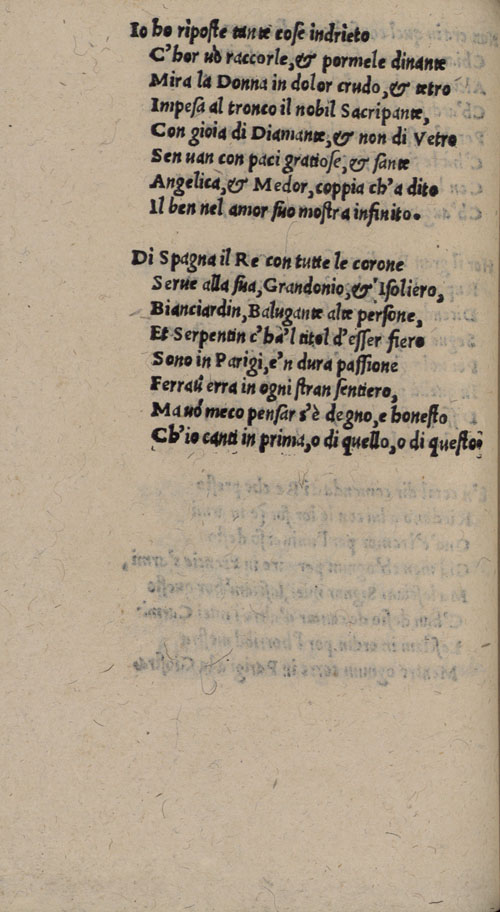 Io ho riposte tante cose indrieto
C'hor uò raccorle, & pormele dinante
Mira la Donna in dolor crudo, & tetro
Impesa al tronco il nobil Sacripante,
Con gioia di Diamante, & non di Vetro
Sen uan con paci gratiose, & sante
Angelica, & Medor, coppia ch'a dito
Il ben nel amor suo mostra infinito.
Di Spagna il Re con tutte le corone
Serue alla sua, Grandonio, & Isoliero,
Bianciardin, Balugante alte persone,
Et Serpentin c'ha'l titol d'esser fiero
Sono in Parigi, e'n dura passione
Ferraù erra in ogni stran sentiero,
Ma uò meco pensar s'è degno, e honesto
Ch'io canti in prima, o di quello, o di questo.